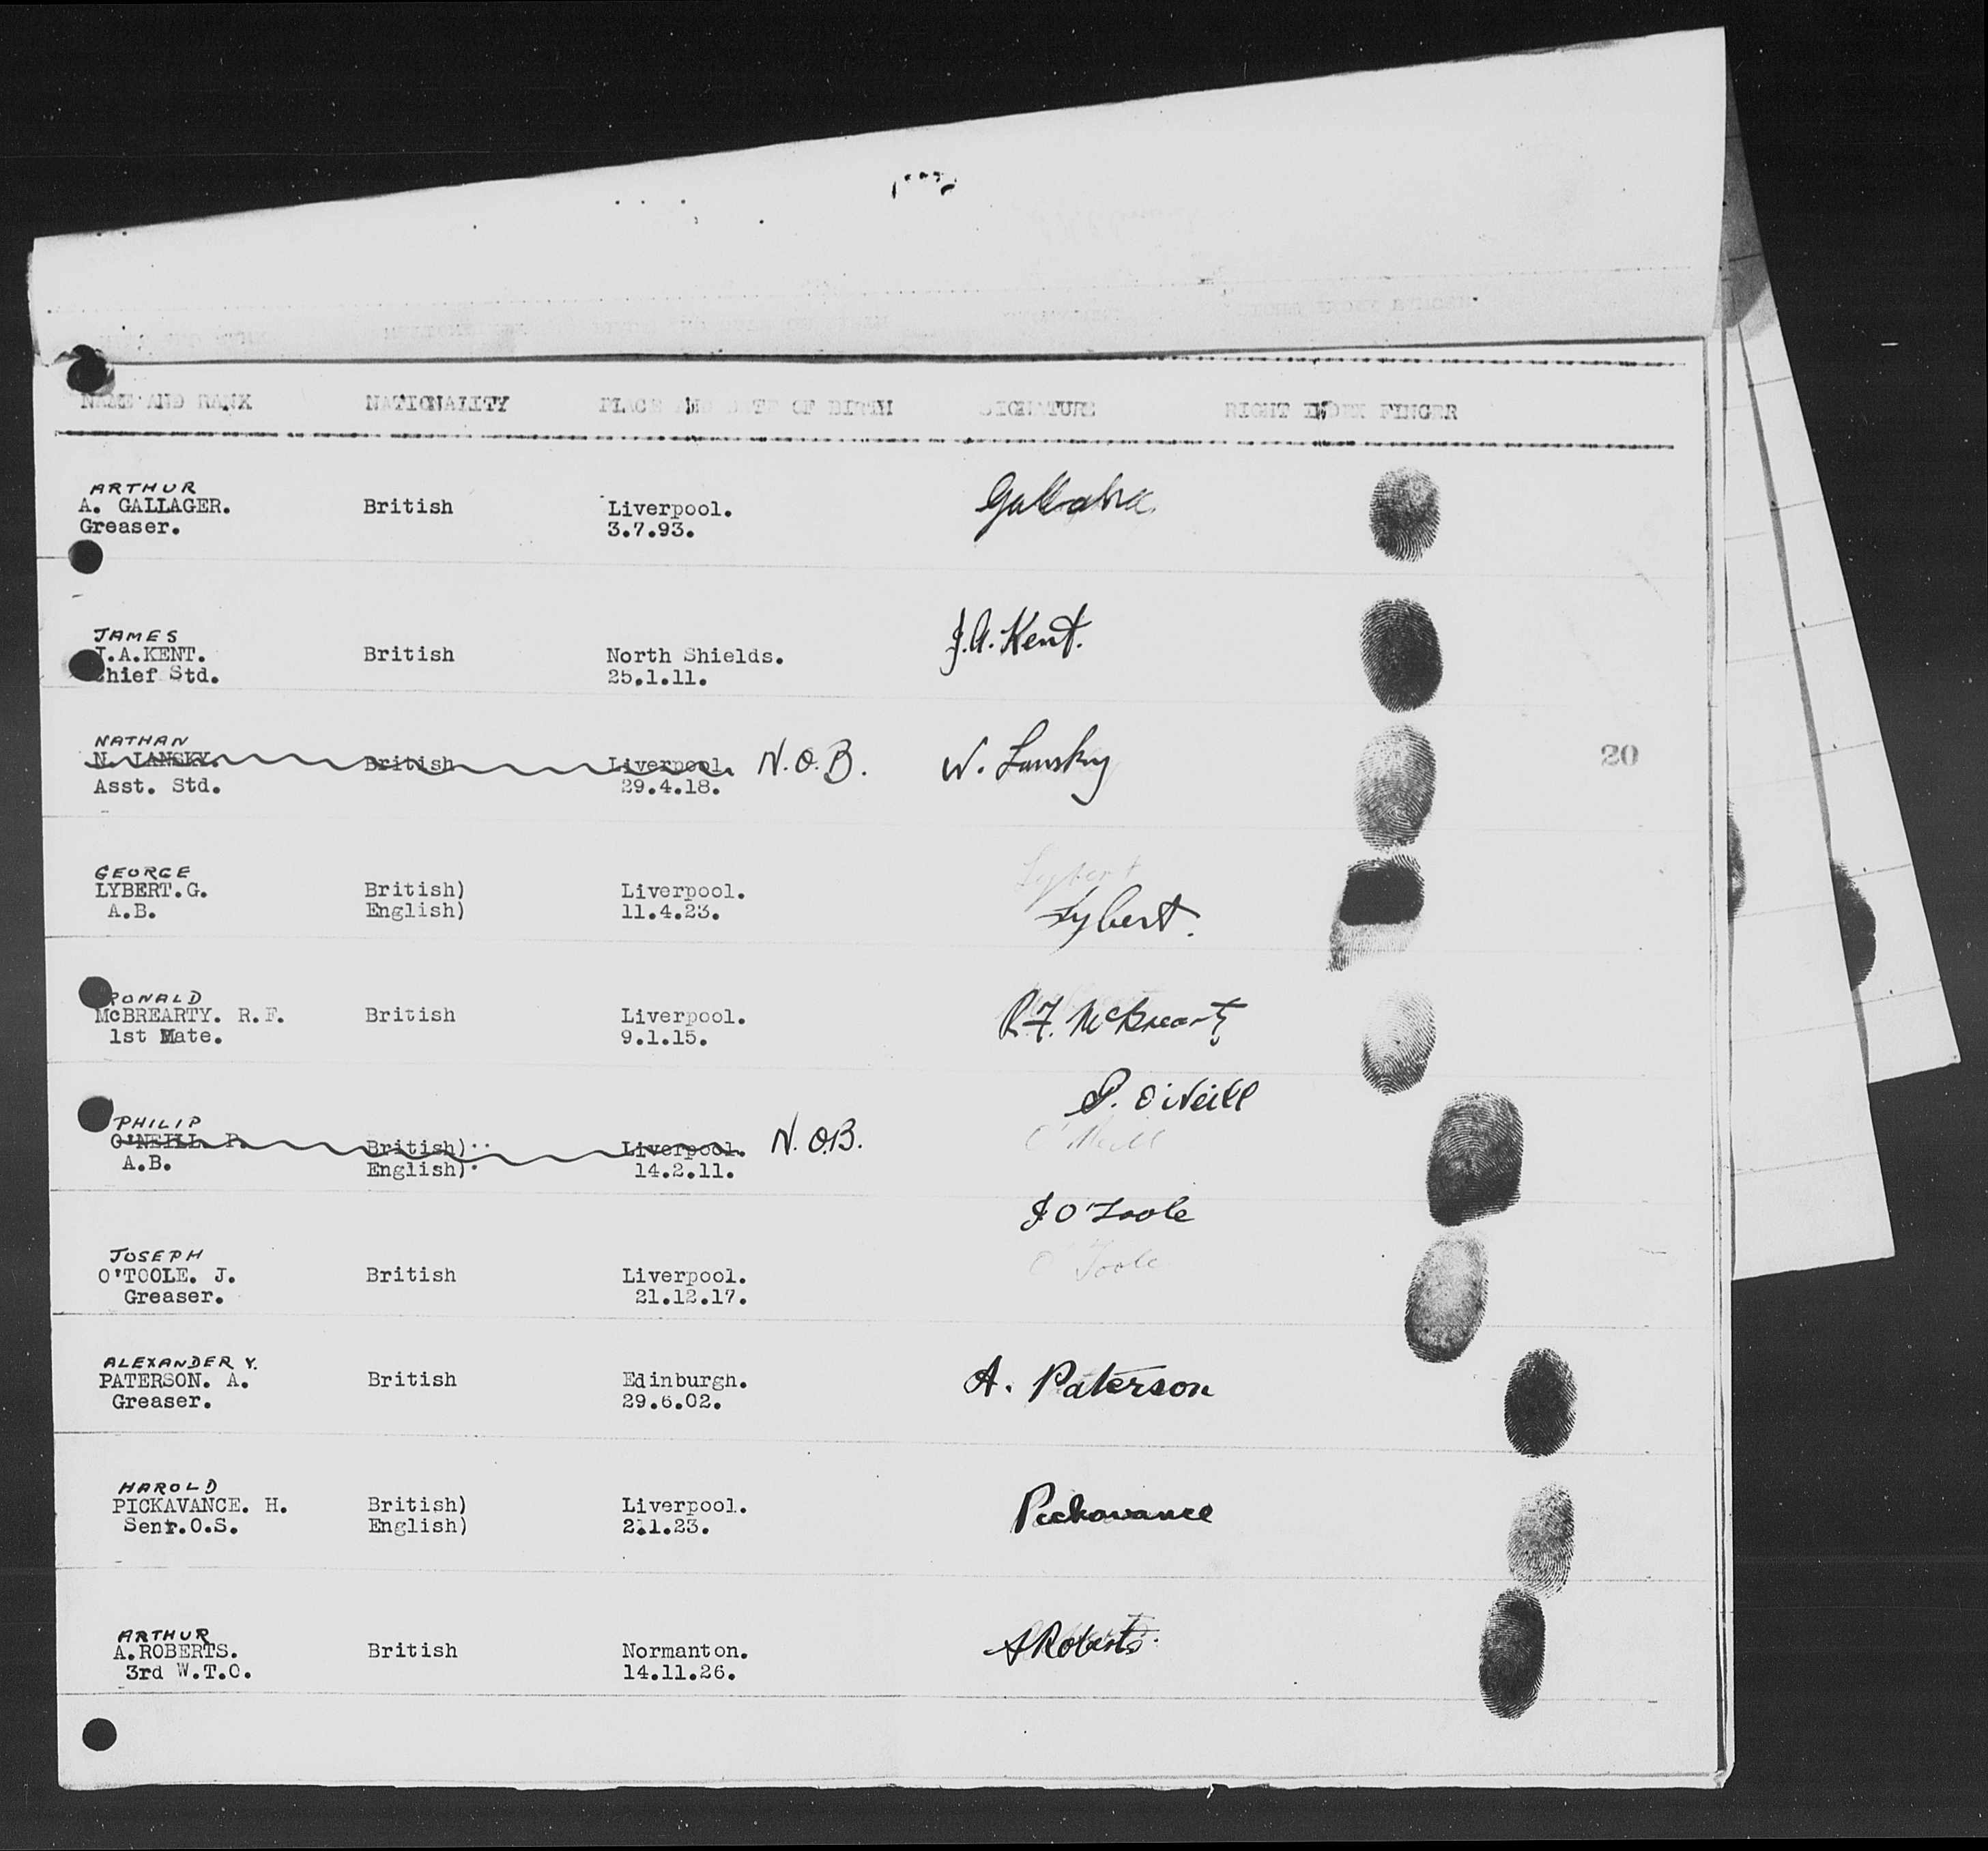 NAME AND RANK NATIONALITY PLACE AND DATE OF BIRTH SIGNATURE RIGHT INDEX FINGER
ARTHUR
A. GALLAGER. British Liverpool.
Greaser. 3.7.93.
JAMES J.A. Kent.
J.A.KENT. British North Shields.
Chief Std. 25.1.11.
NATHAN
N. LANSKY. British Liverpool. N.O.B. N. Lansky 20
Asst. Std. 29.4.18.
GEORGE Lybert
LYBERT.G. British) Liverpool.
A.B. English) 11.4.23. Lybert.
RONALD
McBREARTY. R.F. British Liverpool. R.F. McBrearty
1st Mate. 9.1.15.
P. O'Neill
PHILIP
O'NEILL. P. British) Liverpool. N.O.B. O'Neill
A.B. English) 14.2.11.
J O'Toole
JOSEPH O'Toole
O'TOOLE. J. British Liverpool.
Greaser. 21.12.17.
ALEXANDER Y.
PATERSON. A. British Edinburgh. A. Paterson
Greaser. 29.6.02.
HAROLD
PICKAVANCE. H. British) Liverpool. Pickavance
Senr.O.S. English) 2.1.23.
ARTHUR
A.ROBERTS. British Normanton. A Roberts.
3rd W.T.O. 14.11.26.